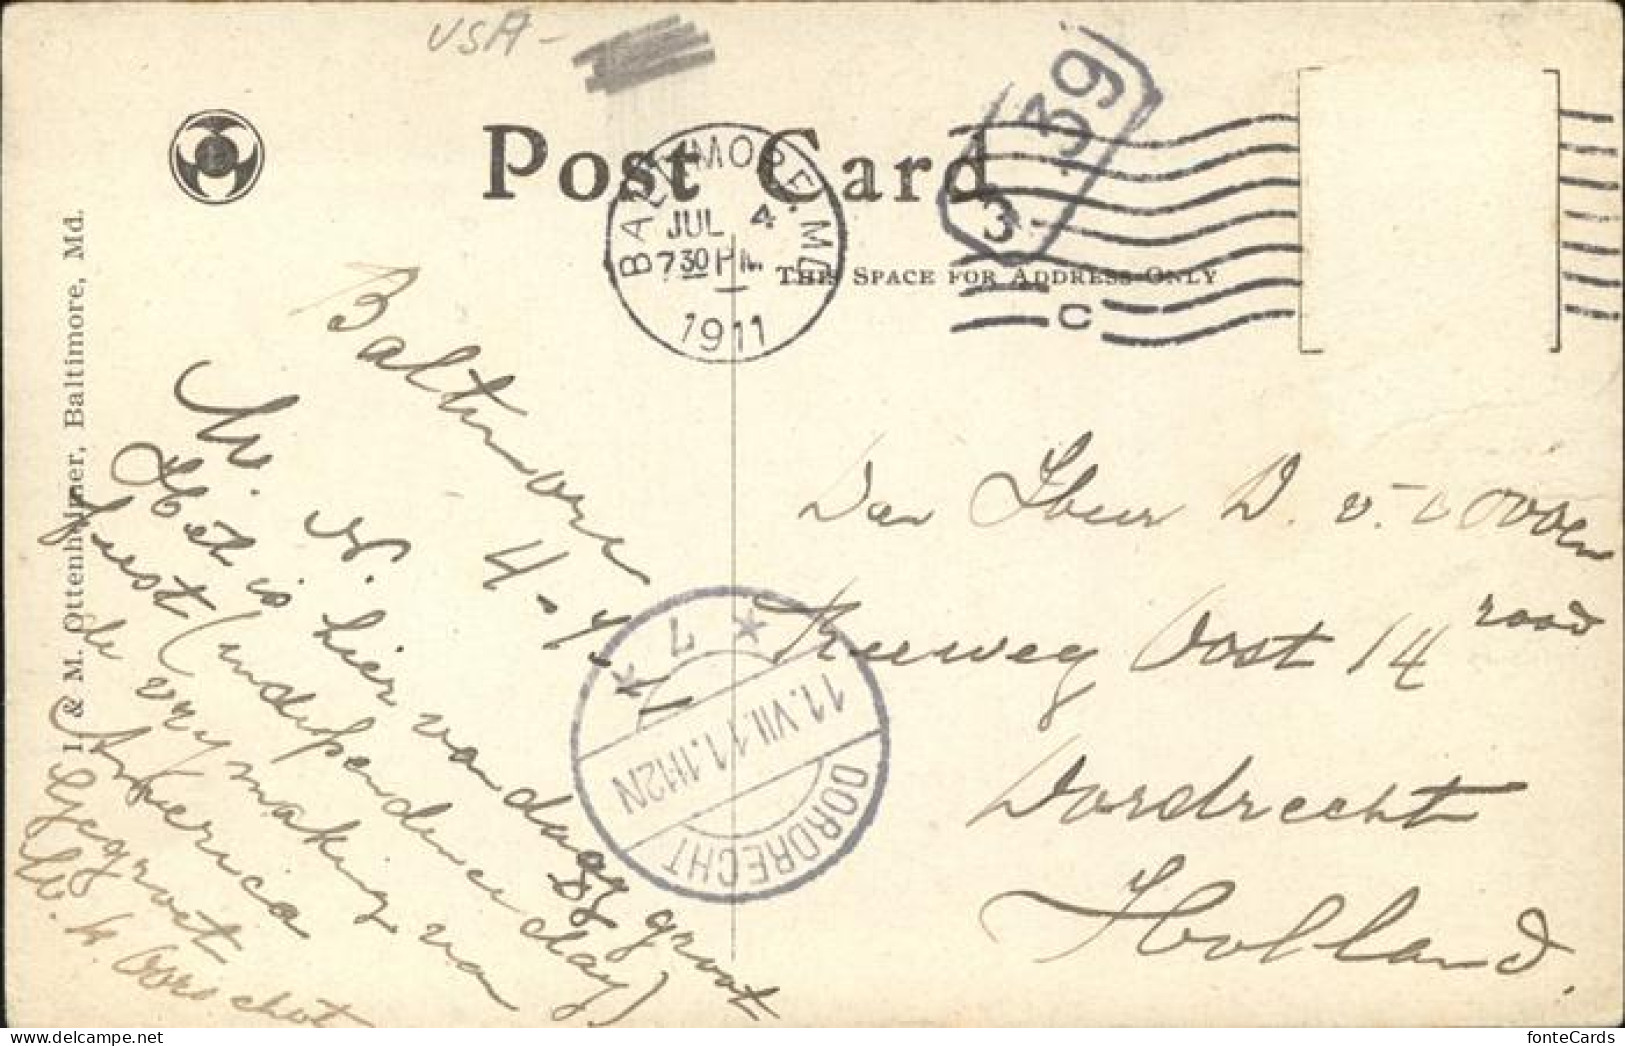 USA -
Post Card
BALTIMORE, MD.
JUL 4
7 30 PM
1911
3
39
C
THIS SPACE FOR ADDRESS ONLY
I. & M. Ottenheimer, Baltimore, Md.
Baltimore
4-7-11
W. N.
Het is hier vandaag groot
feest (independence day)
de vrymaking van
America
Gegroet
W. H. Oorschot
Den Heer D. v.
Reeweg Oost 14 rood
Dordrecht
Holland.
DORDRECHT
11.VII.11.11-12N
7
fonteCards